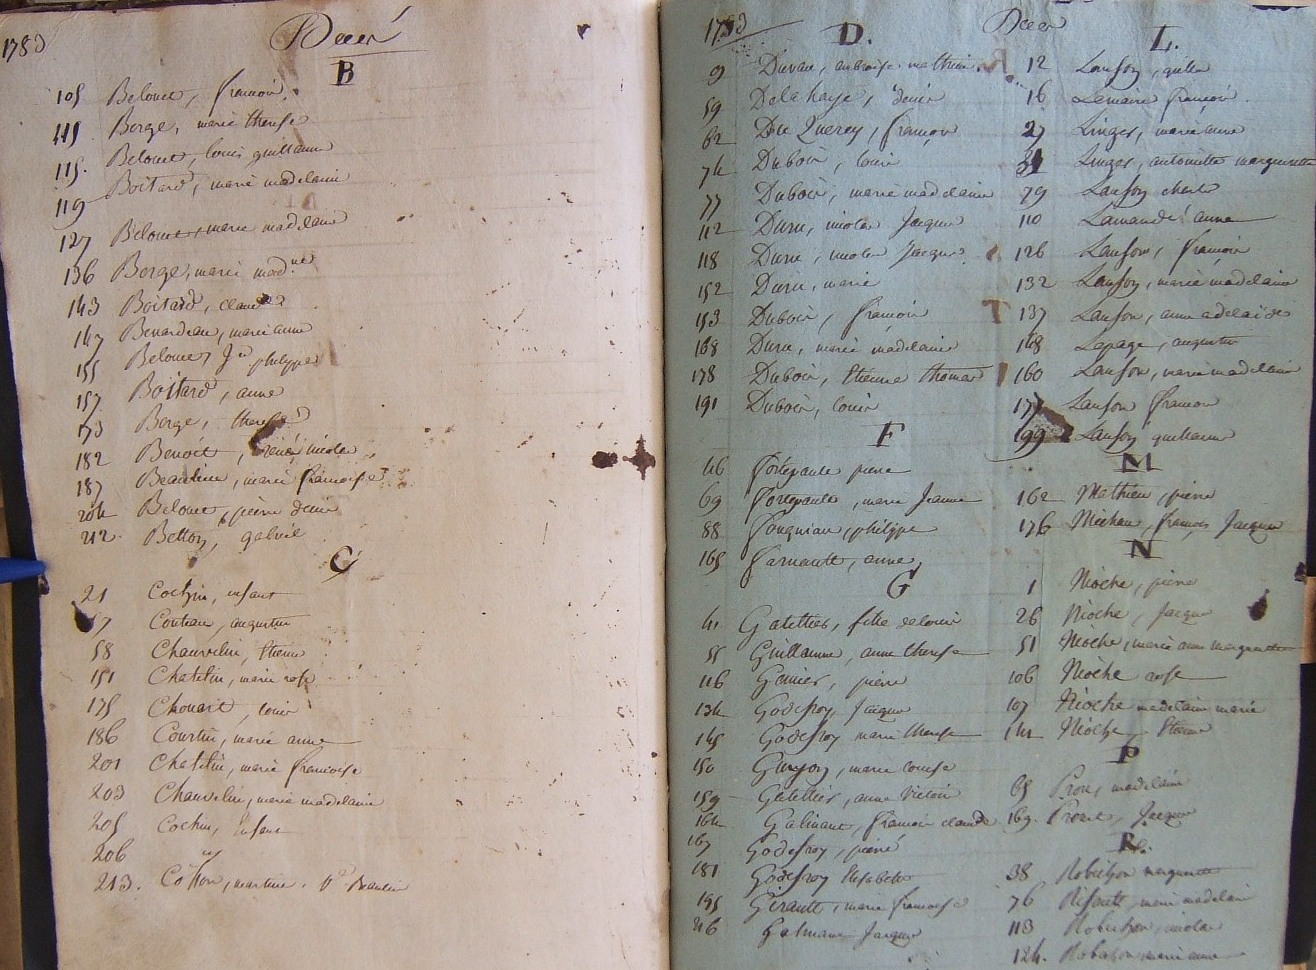 1783
Decés
B
105 Belouet, françois
115 Berge, marie therese
115. Belouet, louis guillaume
119 Boitard, marie madelaine
127 Belouet, marie madelaine
136 Berge, marie mad.ne
143 Boitard, claude
147 Benardeau, marie anne
155 Belouet, philippe
157 Boitard, anne
173 Berge, therese
182 Benoit, nicolas
187 marie françoise
204 Belouet, pierre denis
212. Betton, gabriel
C
21 Cochin, enfant
57 Couteau, augustin
58 Chauvelin, Etienne
151 Chatelin, marie rose
175 Chouart, louis
186 Courtin, marie anne
201 Chatelin, marie françoise
203 Chauvelin, marie madelaine
205 Cochin, enfant
206
213. martine
1783
Decés
D.
9 ambroise mathurin
59 Delahaye, denis
62 Du Querey, françois
74 Dubois, louis
77 Dubois, marie madelaine
112 Duru, nicolas Jacques
118 Duru, nicolas Jacques
152 Duru, marie
153 Dubois, françois
168 Duru, marie madelaine
178 Dubois, Etienne thomas
191 Dubois, louis
F
46 Fortepaule pierre
69 Fortepaule, marie Jeanne
88 philippe
165 anne
G
41 Gatellier, fille de louis
55 Guillaume, anne therese
116 Garnier, pierre
134 Godefroy, Jacques
145 Godefroy marie therese
150 Guyon, marie louise
159 Gatellier, anne victoire
164 Galmant, françois claude
167 Godefroy, pierre
181 Godefroy Elisabeth
195 Girault, marie françoise
216 Jacques
L.
12 Lanson, guillau
16 Lemaire françois
27 Linger, marie anne
31 Linger, antoinette marguerite
79 Lanson charles
110 Lamandé anne
126 Lanson, françois
132 Lanson, marie madelaine
137 Lanson, anne adelaide
148 Lepage, augustin
160 Lanson, marie madelaine
177 Lanson françois
199 Lanson guillaume
M
162 Mathieu, pierre
176 Michau, françois Jacques
N
1 Nioche, pierre
26 Nioche, Jacques
51 Nioche, marie anne marguerite
106 Nioche rose
107 Nioche madelaine marie
141 Nioche, Etienne
P
65 Prou, madelaine
169. Jacques
R.
38 Robichon marguerite
76 Rifault, marie madelaine
113 Robichon, nicolas
124. Robichon, marie anne